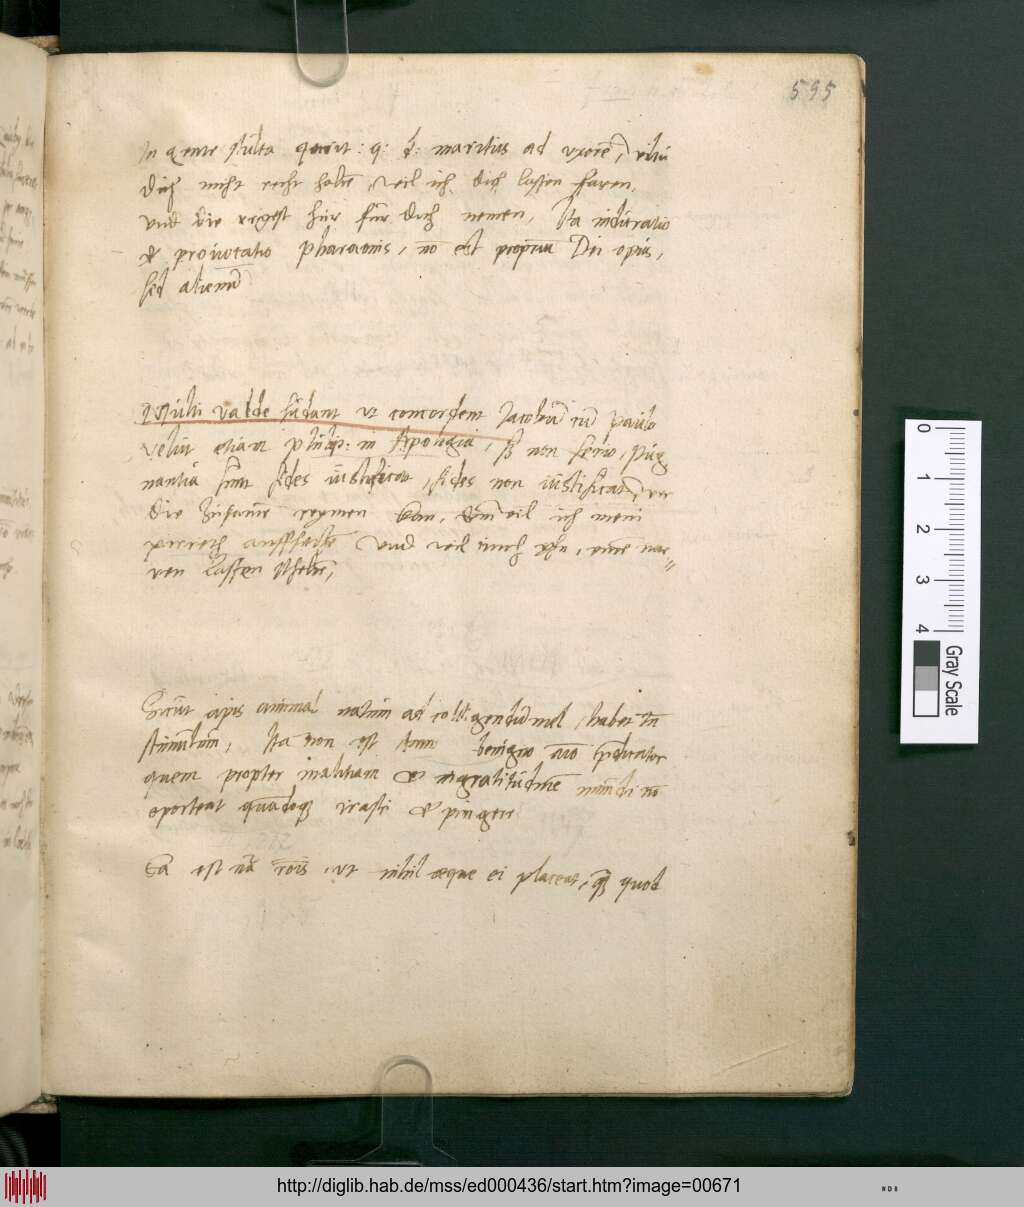 595
In gente stulta querit: q: d: maritus ad vxorē, wiltu
dich nicht recht halte, weil ich dich lassen faren,
vnd die
hur fur dich nemen, Ita induratio
& prouocatio Pharaonis, nō est propriū Dei opus,
sed alienū
Multi valde sudant vt concordent Iacobū cū Paulo
velut etiam Philip: in Apologia, sꝫ non serio, Pug
nantia sunt fides iustificat, fides non iustificat, wer
die zusame reymen kan, dem wil ich mein
pirreth auffsetze vnd wil mich
eine nar=
ren lassen schelte,
Sicut apis animal natum ad colligendū mel, habet tn̄
stimulum, Ita non est tam benignꝰ
p̄dicator
quem propter malitiam & ingratitudinē mundi nō
oporteat quādoqꝫ irasci & pungere
Ea est nā
vt nihil aeque ei placeat, quod
0 1 2 3 4
Gray Scale
http://diglib.hab.de/mss/ed000436/start.htm?image=00671